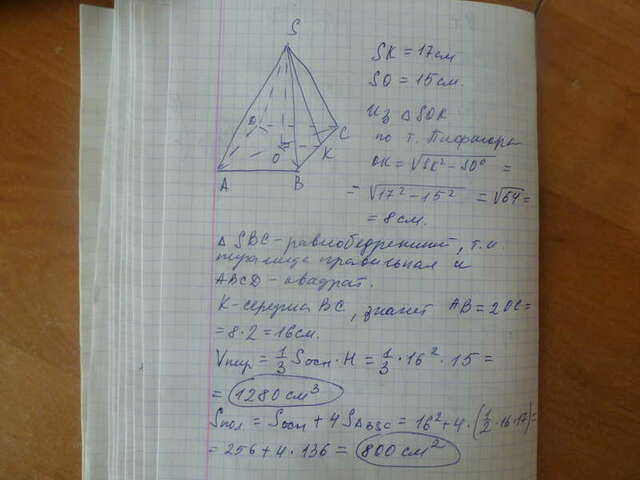 S
SK = 17см
SO = 15см.
Из △ SOK
по т. Пифагора
OK = √SK² - SO² =
= √17² - 15² = √64 =
= 8 см.
D
C
O
K
A
B
△ SBC - равнобедренный, т.к
пирамида правильная и
ABCD - квадрат.
K - середина BC, значит AB = 2OK =
= 8·2 = 16см.
Vпир = 1/3 Sосн · H = 1/3 · 16² · 15 =
= 1280 см³
Sпол = Sосн + 4S△BSC = 16² + 4 · (1/2 · 16 · 17) =
= 256 + 4 · 136 = 800 см²